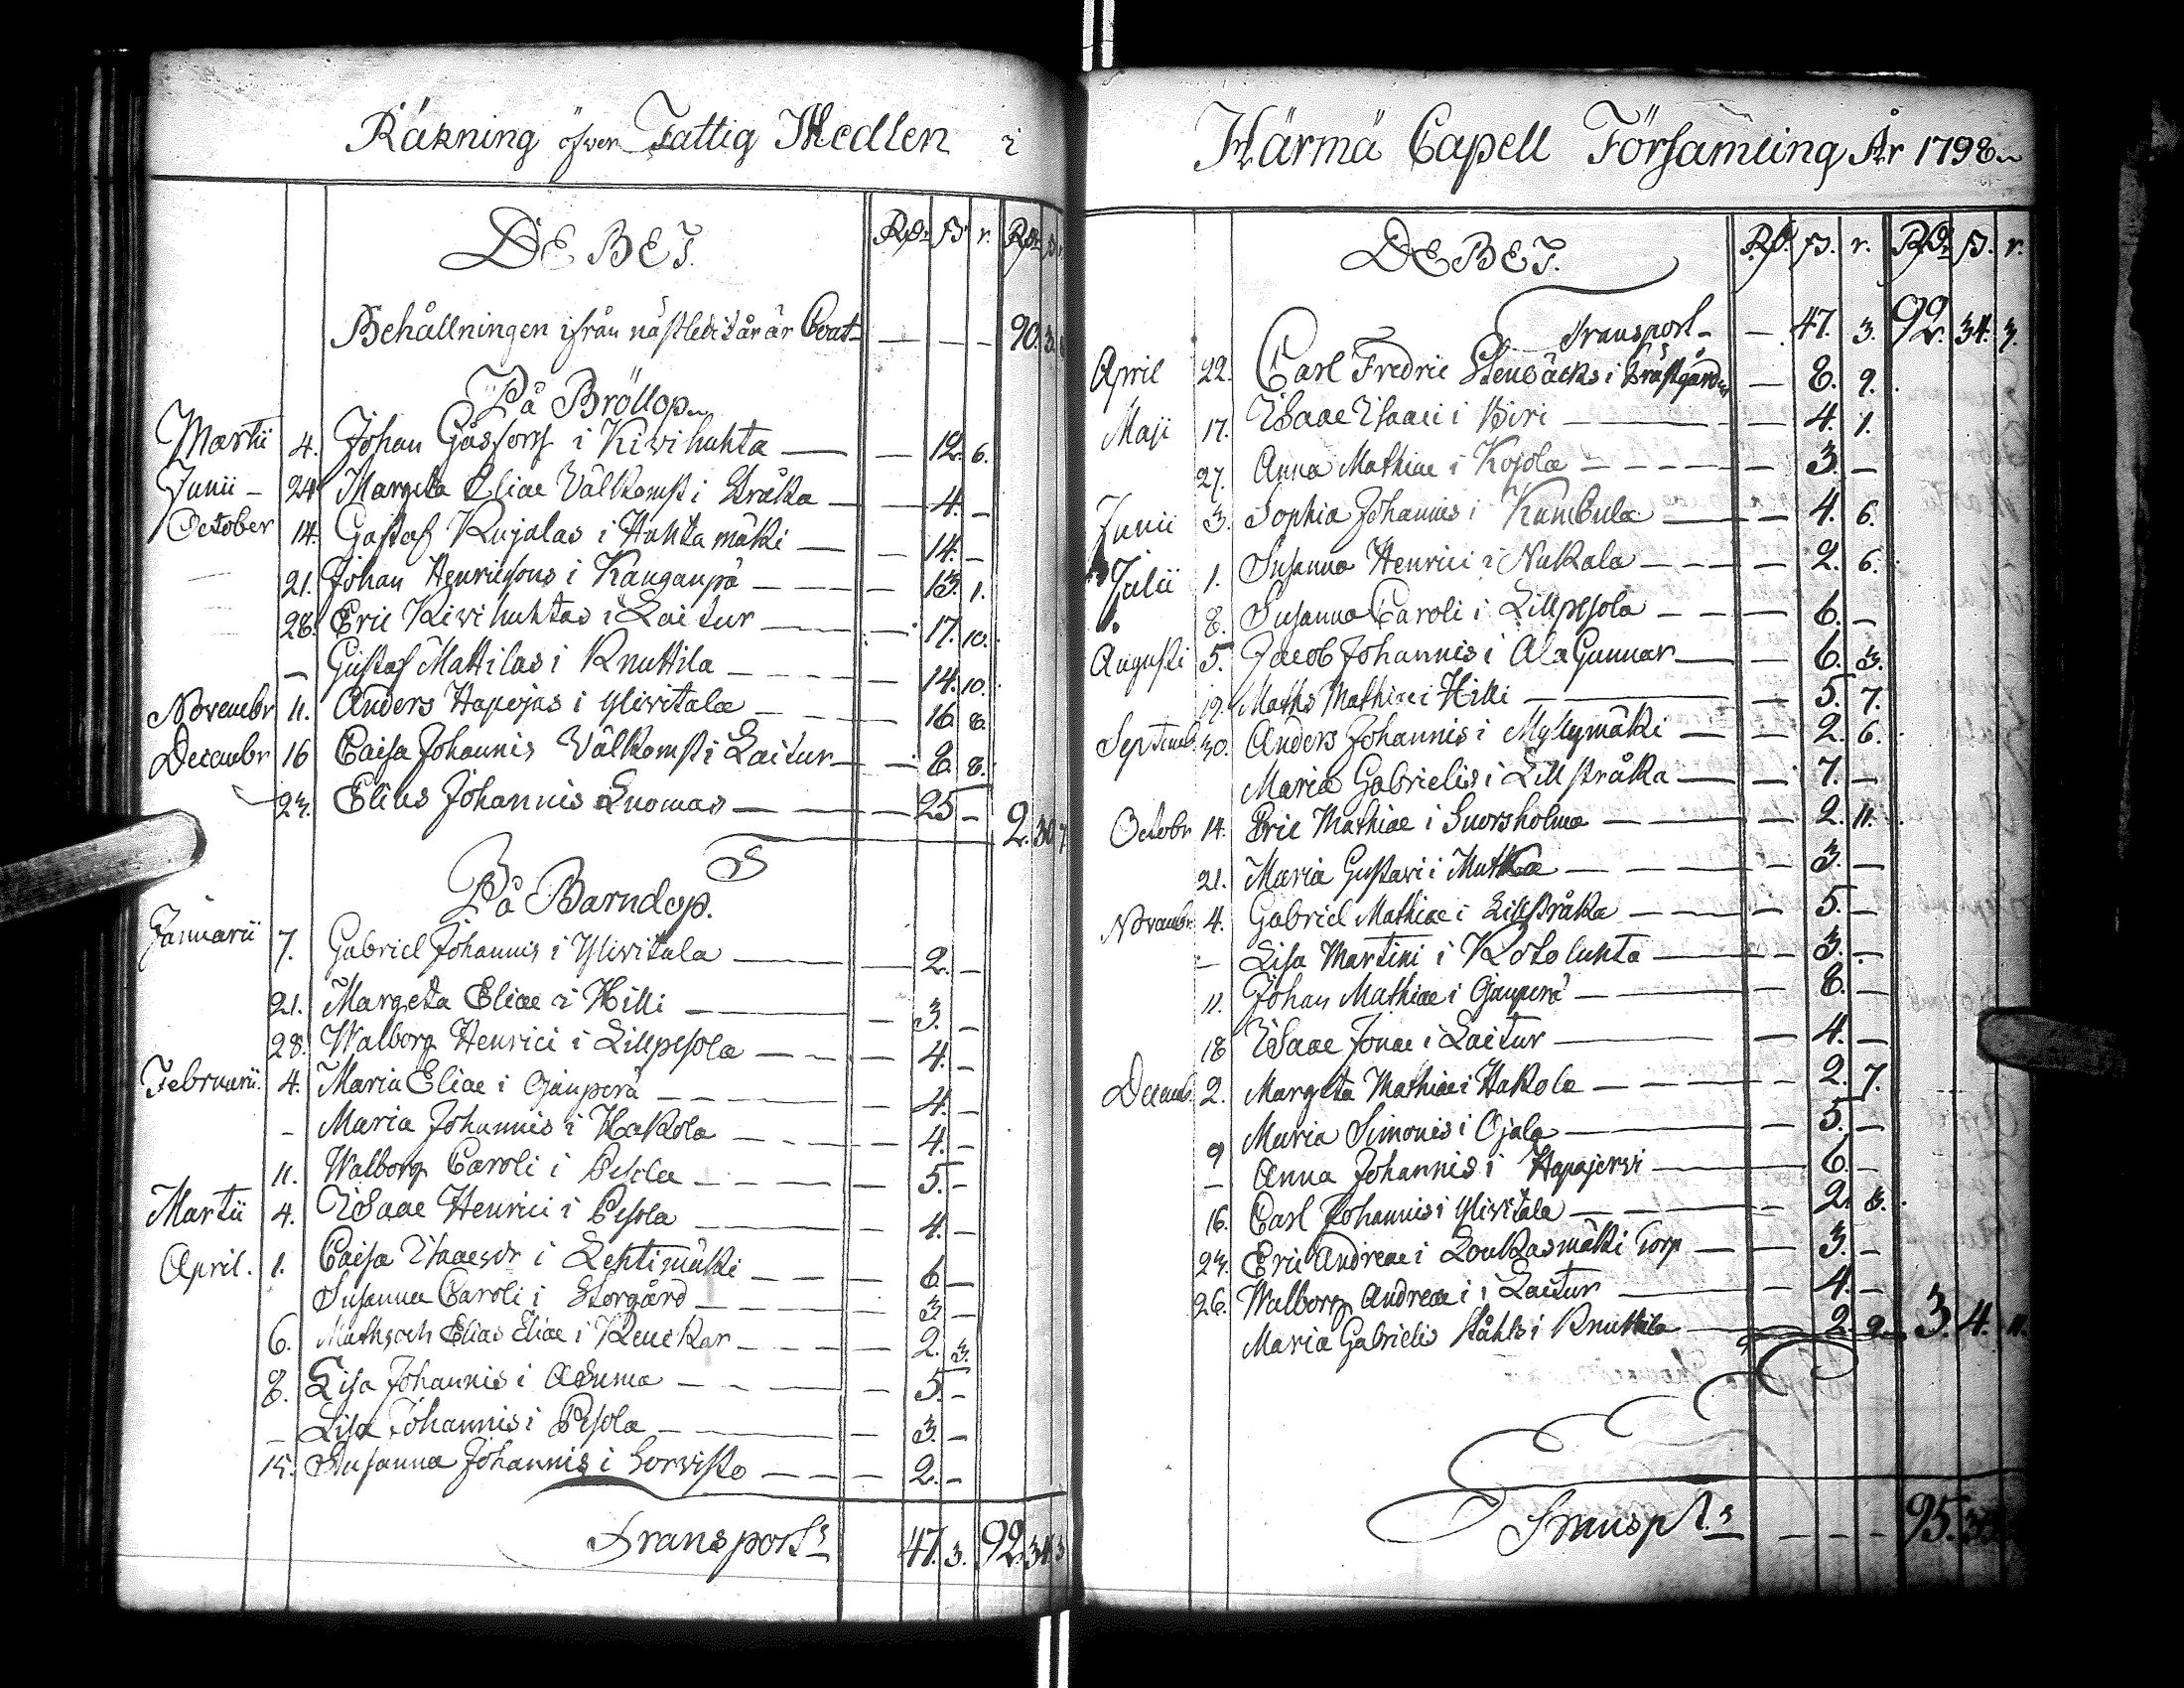 Räkning öfver Fattig Medlen i
DEBET. Rdr ß r. Rdr ß r
Behållningen ifrån nästledit år är Cont — — — 90. 3.
På Bröllop
Martii 4. Johan Gåsforss i Kivihuhta — 12. 6.
Junii 24 Margeta Eliae Välkomst i Stråka — 4. —
October 14. Gustaf Kujalas i Huhtamäki — 14. —
21. Johan Henricsons i Kanganpä — 13. 1.
28. Eric Kivihuhtas i Laitur — 17. 10.
— Gustaf Mattilas i Knuttila — 14. 10.
Novembr 11. Anders Haperjas i Ylivitala — 16. 8.
Decembr 16 Caisa Johannis Välkomst i Laitur — 8. 8.
23. Elias Johannis Luomas — 25 — 2. 30 7
På Barndop.
Januarii 7. Gabriel Johannis i Ylivitala — 2. —
21. Margeta Eliae i Hilli — 3. —
28. Walborg Henrici i Lillpesola — 4. —
Februarii 4. Maria Eliae i Ojanperä — 4. —
- Maria Johannis i Hakola — 4. —
11. Walborg Caroli i Pesola — 5. —
Martii 4. Isaac Henrici i Pesola — 4. —
April. 1. Caisa Isaacsdr i Lehtimäki — 6 —
Susanna Caroli i Storgård — 3 —
6. Maths och Elias Eliae i Renckar — 2. 3.
8. Lisa Johannis i Aduma — 5. —
— Lisa Johannis i Pesola — 3. —
15. Susanna Johannis i Sorvisto — 2. —
Transport 47. 3. 92. 34. 3
Härmä Capell Församling År 1798
DEBET. Rdr. ß. r. Rdr ß. r.
Transport — 47. 3. 92. 34. 3.
April 22. Carl Fredric Stenbäcks i Prästgården — 8. 9.
Maji 17. Isaac Isaaci i Biri — 4. 1.
27. Anna Mathiae i Kojola — 3. —
Junii 3. Sophia Johannis i Kumbula — 4. 6.
Julii 1. Susanna Henrici i Nukala — 2. 6.
8. Susanna Caroli i Lillpesola — 6. —
Augusti 5. Jacob Johannis i Ala Gunnar — 6. 3.
19. Maths Mathiae i Hilli — 5. 7.
Septemb. 30. Anders Johannis i Myllymäki — 2. 6.
Maria Gabrielis i Lillstråka — 7. —
Octobr 14. Eric Mathiae i Suorsholma — 2. 11.
21. Maria Gustavi i Mutka — 3. —
Novembr 4. Gabriel Mathiae i Lillstråka — 5. —
— Lisa Martini i Kotoluhta — 3. —
11. Johan Mathiae i Ojanperä — 8. —
18 Isaac Jonae i Laitur — 4. —
Decemb. 2. Margeta Mathiae i Hakola — 2. 7.
9 Maria Simonis i Ojala — 5. —
— Anna Johannis i Hapajervi — 6. —
16. Carl Johannis i Ylivitala — 2. 8.
23. Eric Andreae i Loukasmäki Torp — 3. —
26. Walborg Andreae i Laitur — 4. —
Maria Gabrielis Ståhls i Knuttila — 2. 2. 3. 4. 11.
Transpt. — 95.